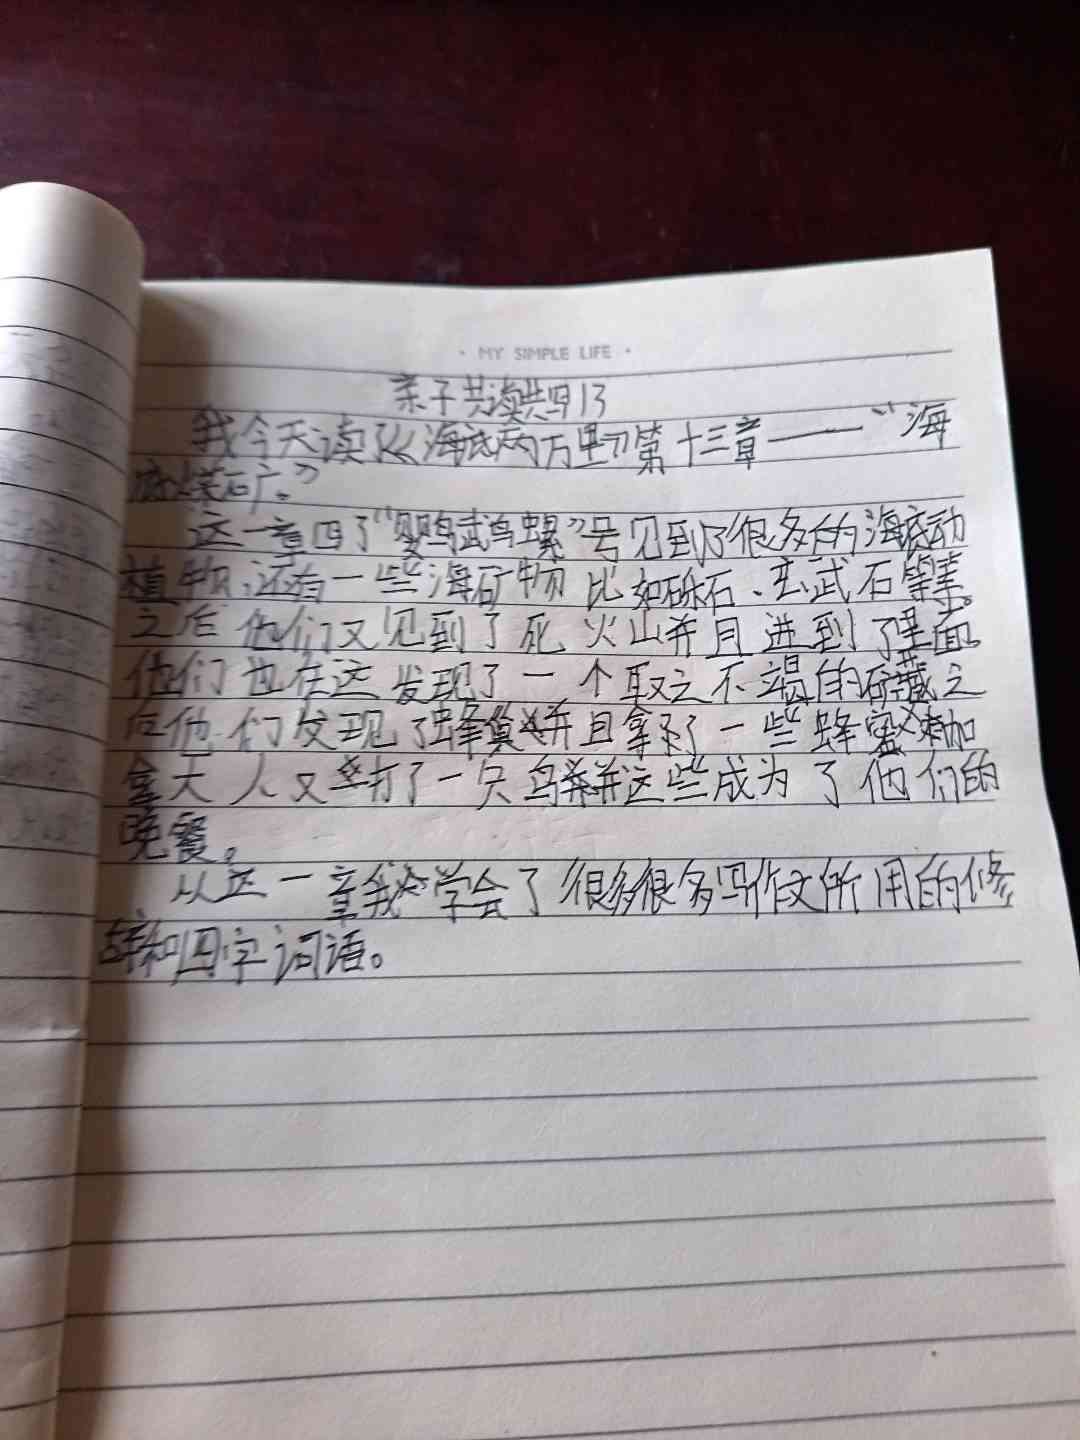 · MY SIMPLE LIFE ·
亲子共读共写13
我今天读了《海底两万里》第十三章——“海
底煤矿。”
这一章写了“鹦鹉螺”号见到了很多的海底动
植物,还有一些海矿物比如砾石、玄武石等等。
之后他们又见到了死火山并且进到了里面。
他们也在这发现了一个取之不竭的矿藏之
后他们发现了蜂巢并且拿了一些蜂蜜加
拿大人又打了一只鸟并这些成为了他们的
晚餐。
从这一章我学会了很多很多写作文所用的修
辞和四字词语。